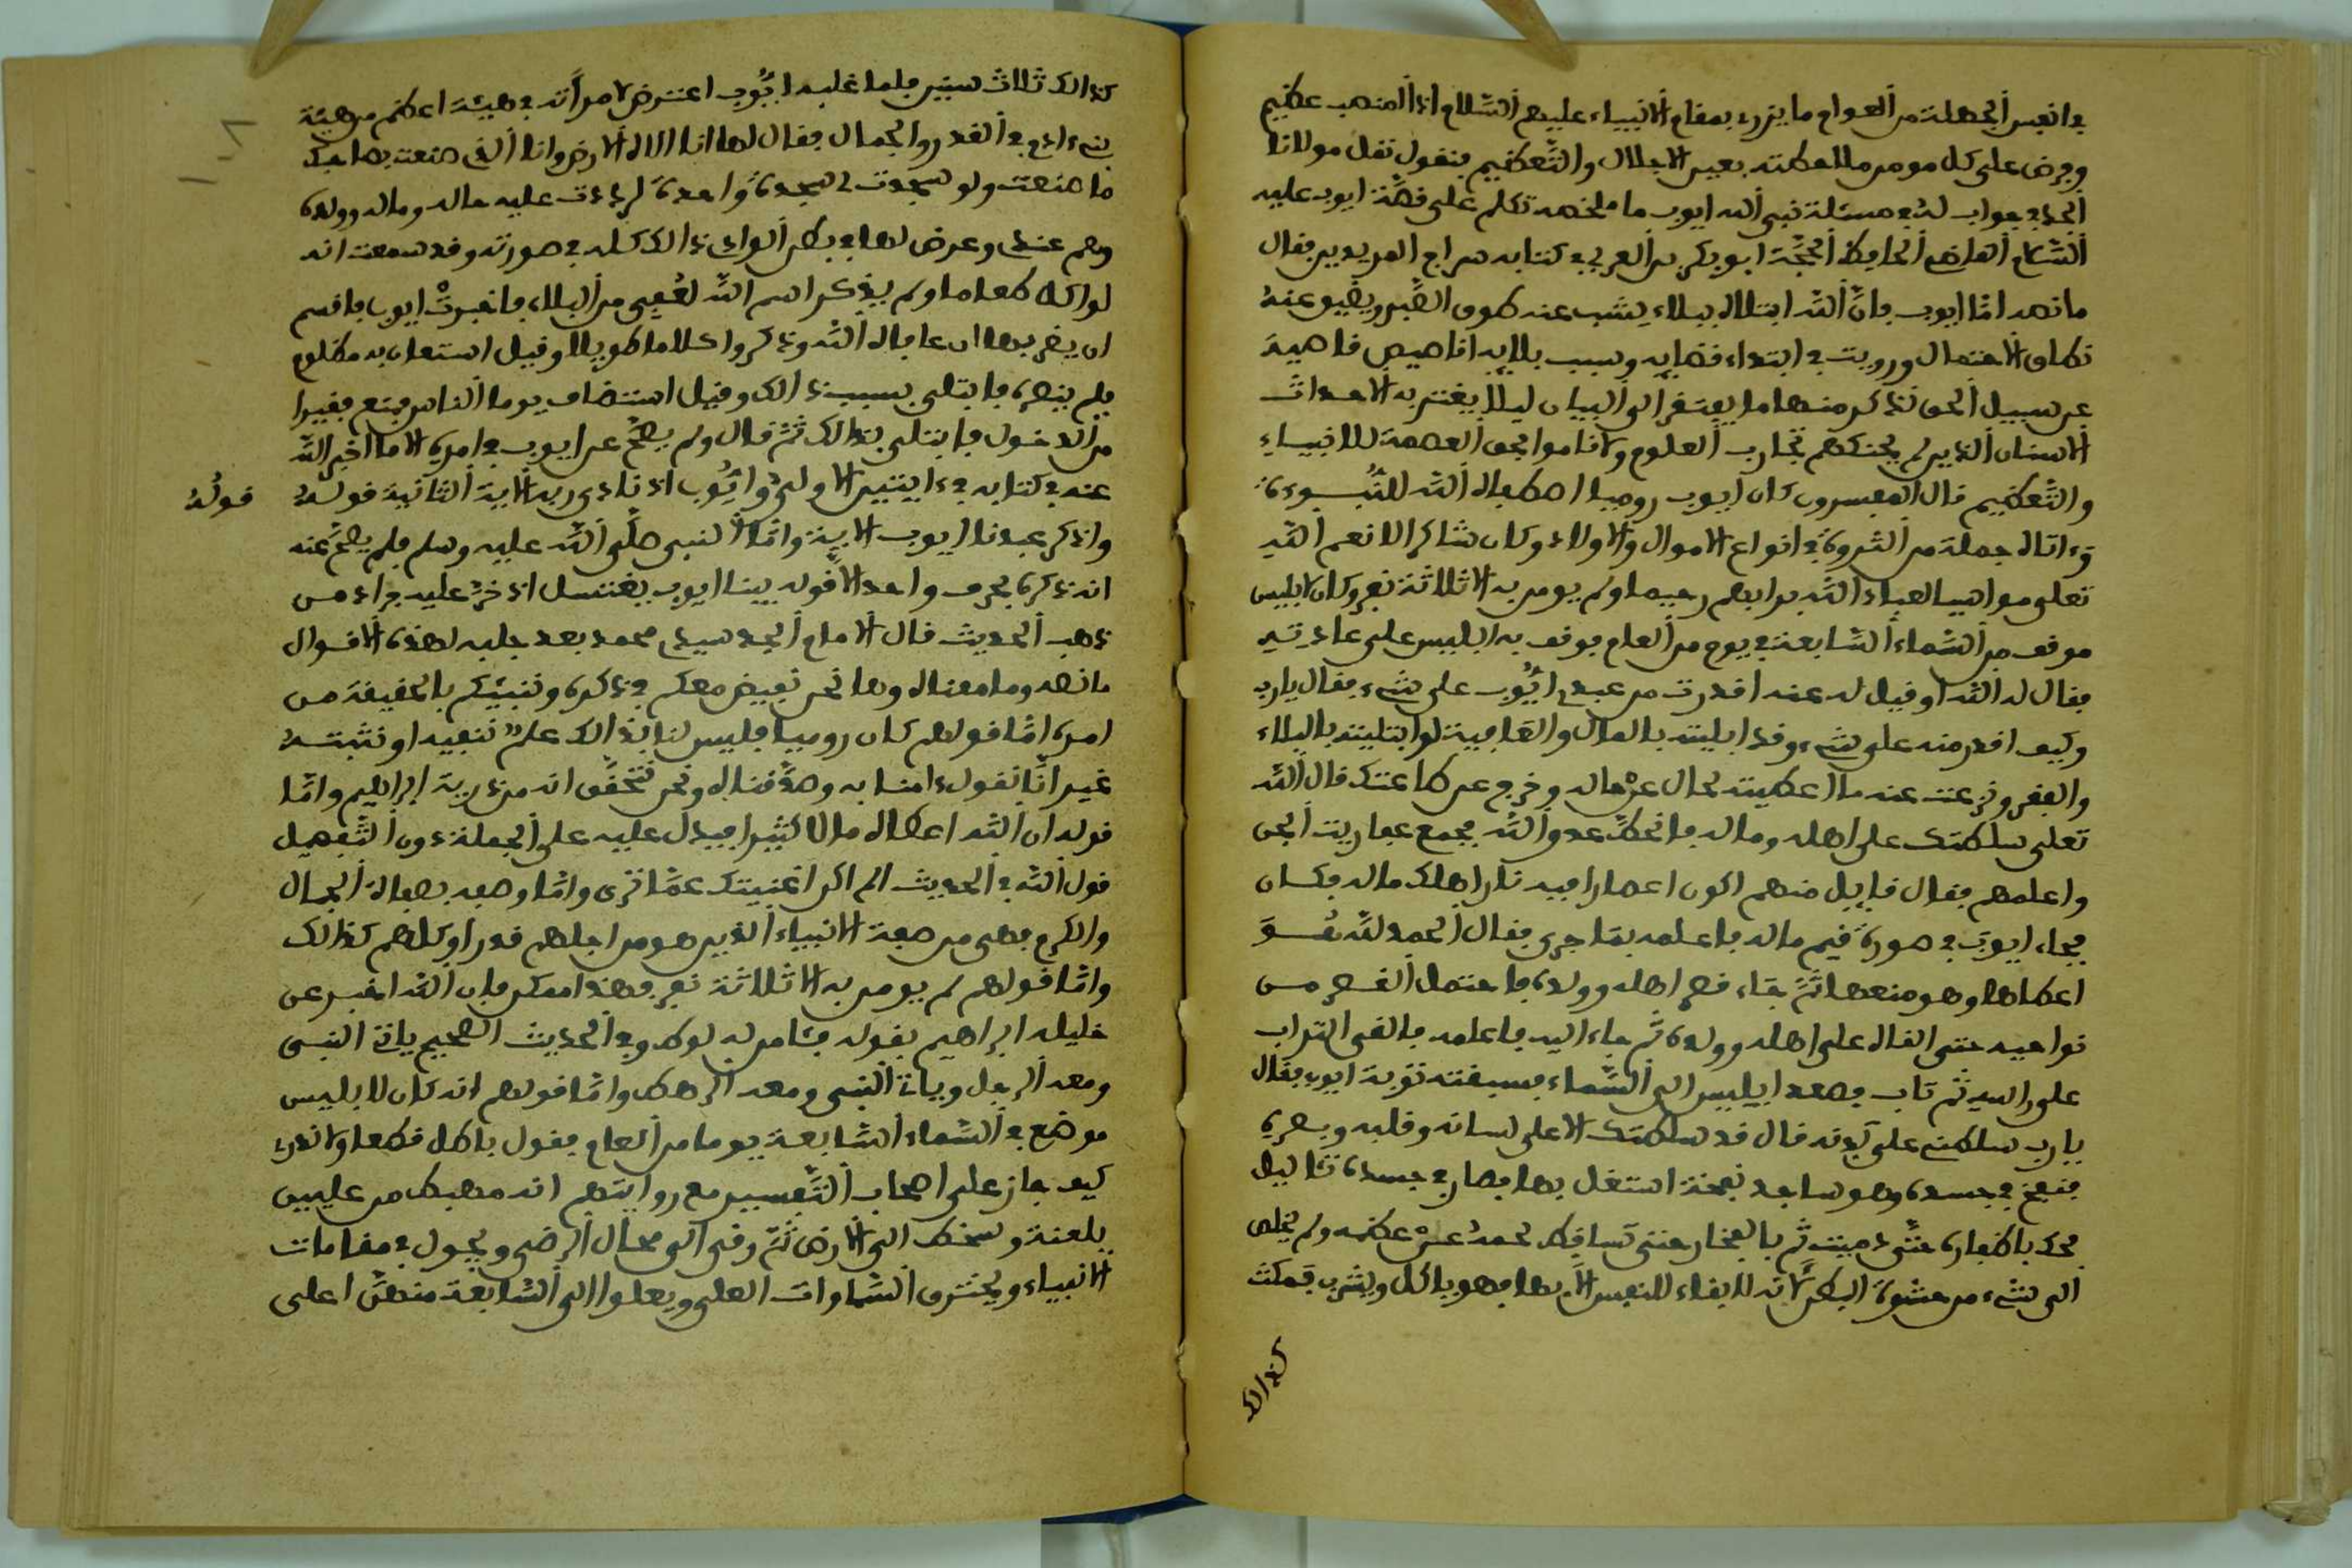 في انفس الجهلة من العوام ما يزري بمقام الانبياء عليهم السلام اذ المنصب عظيم
وفرض على كل مومن ملاحظته بعين الاجلال والتعظيم فنقول نقل مولانا
الجد في جواب له في مسئلة نبي الله ايوب ما ملخصه تكلم على قصة ايوب عليه
السلام القاضي الحافظ الحجة ابو بكر بن العربي في كتابه سراج المريدين فقال
ما نصه اما ايوب فان الله ابتلاه ببلاء يشب عنه طوق الصبر ويضيق عنه
نطاق الاحتمال ورويت في ابتداء قضايه وسبب بلايه اقاصيص قاصية
عن سبيل الحق نذكر منها ما يفتقر الى البيان ليلا يغتر به الاحداث
الاسنان الذين لم يحنكهم تجارب العلوم ولا قاموا بحق العصمة للانبياء
والتعظيم قال المفسرون كان ايوب روميا اصطفاه الله للنبوءة
وءاتاه جملة من الثروة في انواع الاموال والاولاد وكان شاكرا لانعم الله
تعلى مواسيا لعباد الله برا بهم رحيما ولم يومن به الا ثلاثة نفر وكان لابليس
موقف من السماء السابعة في يوم من العام فوقف به ابليس على عادته
فقال له الله او قيل له عنه اقدرت من عبدي ايوب على شيء فقال يارب
وكيف اقدر منه على شيء وقد ابليته بالمال والعافية لو ابتليته بالبلاء
والفقر ونزعت عنه ما اعطيته لحال عن حاله وخرج عن طاعتك قال الله
تعلى سلطتك على اهله وماله فانحط عدو الله فجمع عفاريت الجن
واعلمهم فقال قايل منهم اكون اعصارا فيه نار اهلك ماله فكان
فجاء ايوب في صورة قيم ماله فاعلمه بما جرى فقال الحمد لله هو
اعطاها وهو منعها ثم جاء قصر اهله وولده فاحتمل القصر من
نواحيه حتى القاه على اهله وولده ثم جاء اليه فاعلمه فالقى التراب
على راسه ثم تاب فصعد ابليس الى السماء فسبقته توبة ايوب فقال
يارب سلطني على بدنه قال قد سلطتك الا على لسانه وقلبه وبصره
فنفخ في جسده وهو ساجد نفخة اشتعل بها فصار في جسده ثئاليل
فحك باظفاره حتى دميت ثم بالفخار حتى تساقط لحمه عن عظمه ولم يخلص
الى شيء من حشوة البطن لانه لا بقاء للنفس الا بها فهو ياكل ويشرب فمكث
كذالك
كذالك ثلاث سنين فلما غلبه ايوب اعترض لامراته في هيئة اعظم من هيئة
بني ءادم في القدر والجمال فقال لها انا الاه الارض وانا الذي صنعت بصاحبك
ما صنعت ولو سجدت لي سجدة واحدة لرددت عليه حاله وماله وولده
وهم عندي وعرض لها في بطن الوادي ذالك كله في صورته وقد سمعت انه
لو اكل طعاما ولم يذكر اسم الله لعوفي من البلاء فاخبرت ايوب فاقسم
ان يضربها ان عافاه الله وذكروا كلاما طويلا وقيل استعان به مظلوم
فلم ينصره فابتلي بسبب ذالك وقيل استضاف يوما الناس فمنع فقيرا
من الدخول فابتلي بذالك ثم قال ولم يصح عن ايوب في امره الا ما اخبر الله
عنه في كتابه في ءايتين الاولى وايوب اذ نادى ربه الاية الثانية قوله
قوله
واذكر عبدنا ايوب الاية واما النبي صلى الله عليه وسلم فلم يصح عنه
انه ذكره بحرف واحد الا قوله بينا ايوب يغتسل اذ خر عليه جراد من
ذهب الحديث قال الامام الجد سيدي محمد بعد جلبه لهذه الاقوال
ما نصه وما معناه وها نحن نفيض معكم في ذكره وننبئكم بالحقيقة من
امره اما قولهم كان روميا فليس لنا بذالك علم ننفيه او نثبته
غير انا نقول ءامنا به وصدقناه ونحن نتحقق انه من ذرية ابراهيم واما
قوله ان الله اعطاه مالا كثيرا فيدل عليه على الجملة دون التفصيل
قول الله في الحديث الم اكن اغنيتك عما ترى واما وصفه بصفات الجمال
والكرم فهي من صفة الانبياء الذين هو من اجلهم قدرا وكلهم كذالك
واما قولهم لم يومن به الا ثلاثة نفر فهذا ممكن فان الله اخبر عن
خليله ابراهيم بقوله فئامن له لوط وفي الحديث الصحيح ياتي النبي
ومعه الرجل وياتي النبي ومعه الرهط واما قولهم انه كان لابليس
موضع في السماء السابعة يوما من العام فقول باطل قطعا ولا ندري
كيف جاز على اصحاب التفسير مع روايتهم انه مهبط من عليين
بلعنة وسخط الى الارض ثم رقى الى محال الرضى ويجول في مقامات
الانبياء ويخترق السماوات العلى ويعلوا الى السابعة منهن اعلى